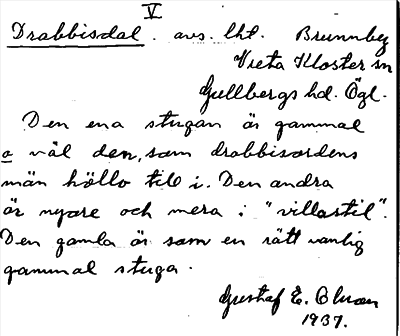 V
Drabbisdal. avs. lht. Brunnby
Vreta Kloster sn
Gullbergs hd. Ögl.
Den ena stugan är gammal
o väl den, som drabbisordens
män höllo till i. Den andra
är nyare och mera i "villastil".
Den gamla är som en rätt vanlig
gammal stuga.
Gustaf E.
1937.